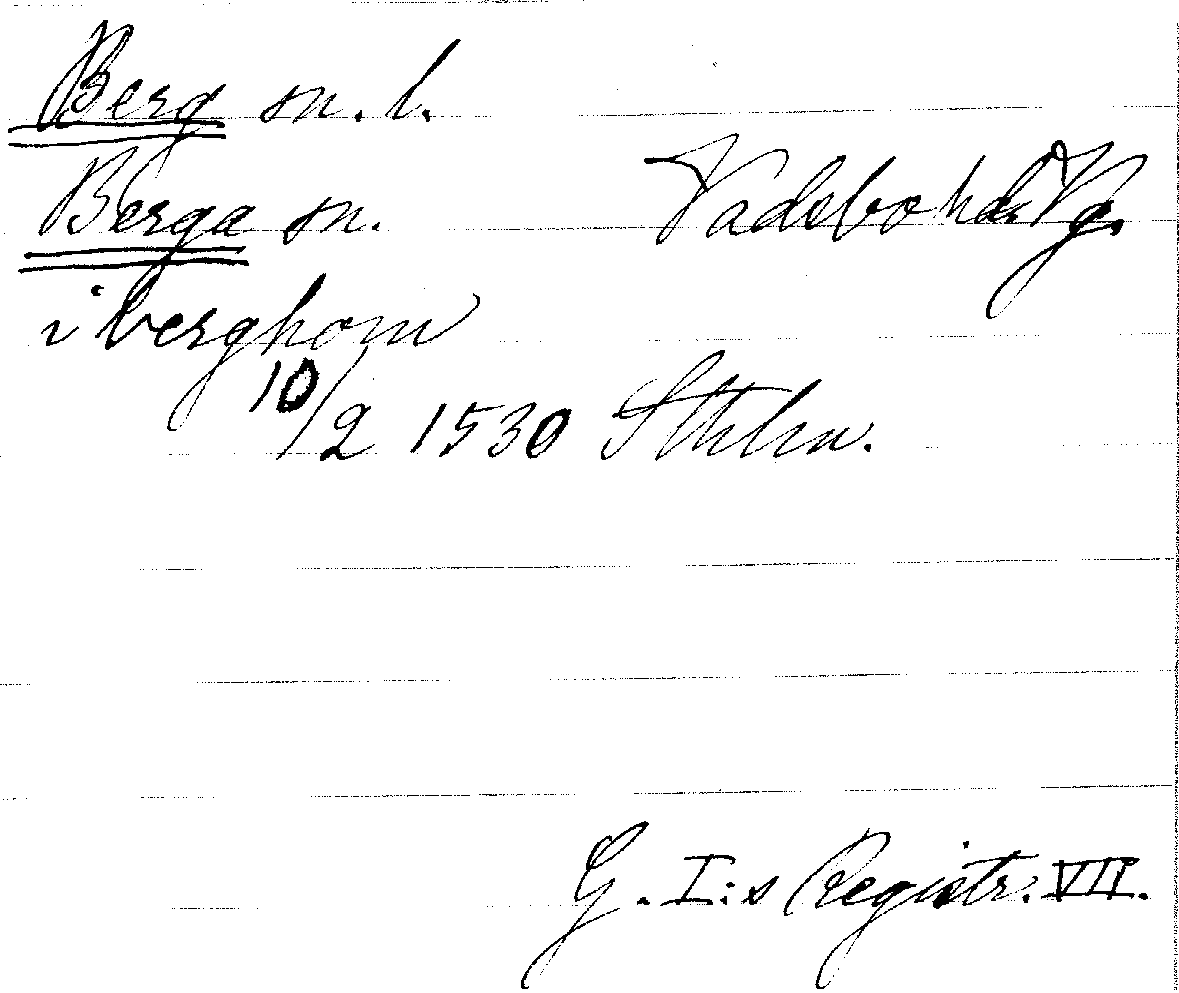 Berg sn. l.
Berga sn. Vadsbo hd. Vg.
i berghom
10/2 1530 Sthlm.
G. I:s Registr. VII.